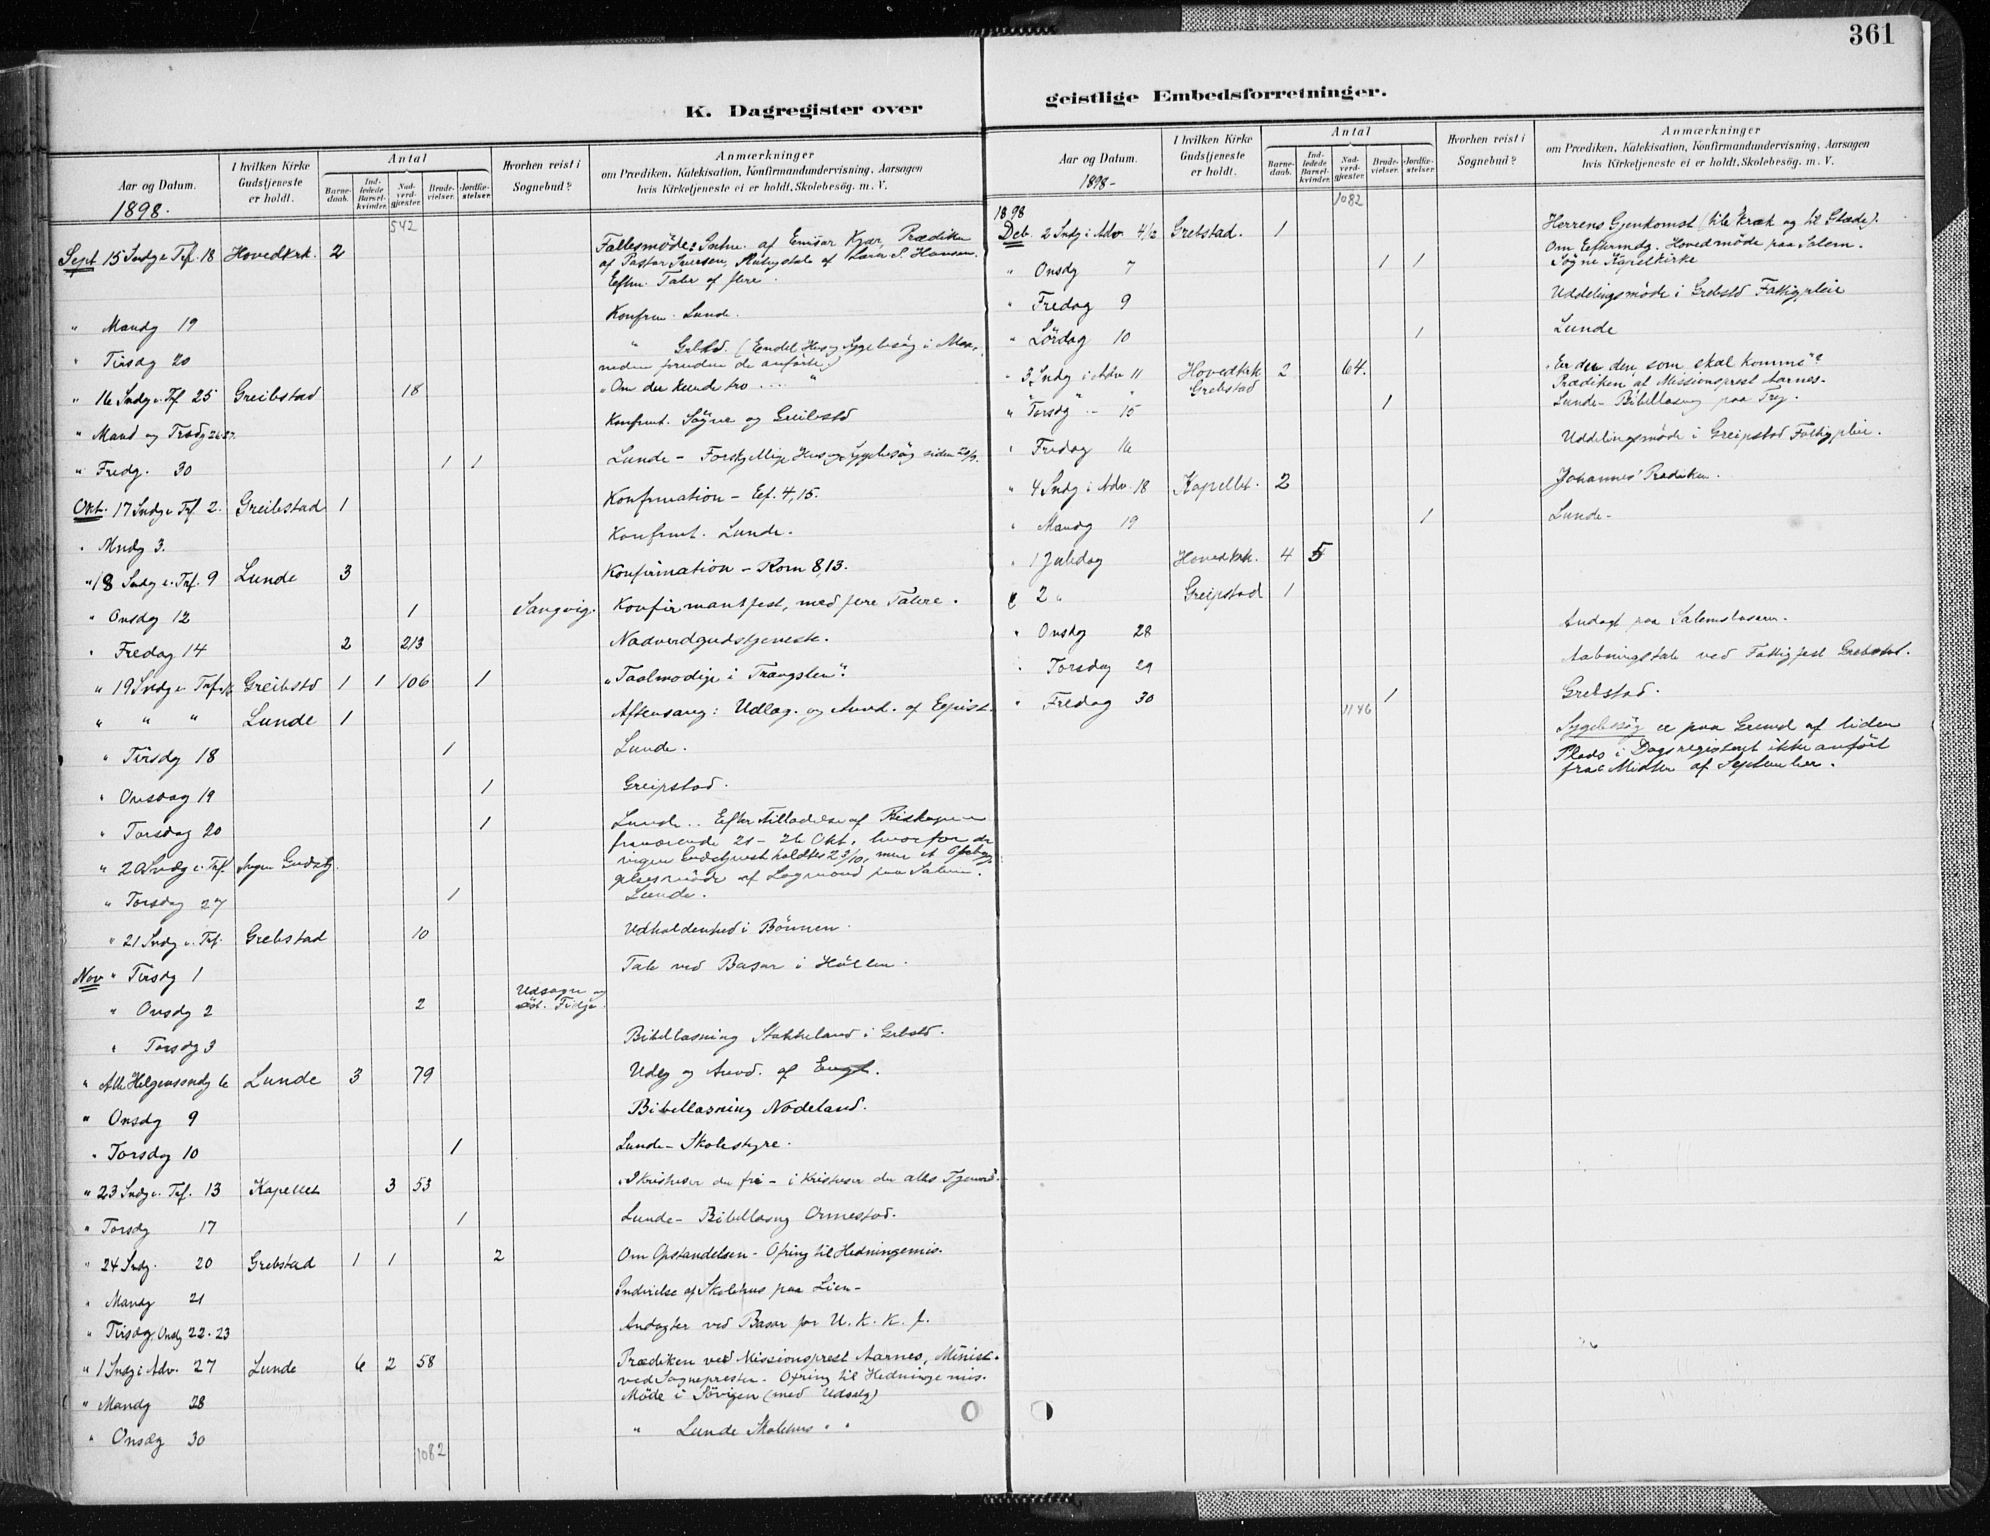 361
K. Dagregister over
geistlige Embedsforretninger.
Aar og Datum.
1898.
I hvilken Kirke Gudstjeneste er holdt.
Antal
Barnedaab.
Indledede Barselkvinder.
Nadverdgjæster.
Brudevielser.
Jordfæstelser.
Hvorhen reist i Sognebud?
Anmærkninger
om Prædiken, Katekisation, Konfirmandundervisning, Aarsagen
hvis Kirketjeneste ei er holdt, Skolebesög. m. V.
542
Sept 15 Sndg e. Trf. 18 Hovedkrk. 2 Fællesmöde: Indm. af Emisær Kjær, Prædiken
af Pastor Iversen, af Lærer S. Hansen.
Efterm. Taler af flere.
" Mandg 19 Konfrm. Lunde.
" Tirsdg 20 " Grbstd. (Endel Hus og Sygebesög i Maa-
neden foruden de anförte.)
" 16 Sndg e. Trf 25 Greibstad 18 "Om du kunde tro .... "
" Mand og Tirsdg 26.27. Konfrmt. Sögne og Greibstd
" Fredg. 30 1 1 Lunde - Forskjellige Hus og Sygebesög siden 20/9.
Okt. 17 Sndg e Trf 2. Greibstad 1 Konfirmation - Ef. 4,15.
" Mndg 3. Konfrmt. Lunde.
" 18 Sndg e. Trf. 9 Lunde 3 Konfirmation - Rom 8,13.
" Onsdg 12 1 Sangvig. Konfirmantfest, med flere Talere.
" Fredag 14 2 213 Nadverdgudstjeneste.
" 19 Sndg e Trf Greibstd 1 1 106 1 "Taalmodige i Trængslen".
" " " Lunde 1 Aftensang: Udlæg. og Anvd. af Epist.
" Tirsdg 18 1 Lunde.
" Onsdag 19 1 Greipstad.
" Torsdag 20 1 Lunde.. Efter Tilladelse af Biskopen
fraværende 21 - 26 Okt, hvorfor der
ingen Gudstjenst holdtes 23/10, men et Opbyg-
gelsesmöde af Lagmand paa Salem.
" 20 Sndg e. Trf. Ingen Gudstj.
" Torsdag 27 1 Lunde.
" 21 Sndg e. Trf. Grebstad 10 Udholdenhed i Bönnen.
Nov " Tirsdg 1 Tale ved Basar i Höllen.
" Onsdg 2 2 Udsogn og öst. Fidje.
" Torsdg 3 Bibellæsning Stokkeland i Grbstd.
" Alle Helgenssndg 6 Lunde 3 79 Udlg og Anvd. af Evgl.
" Onsdg 9 Bibellæsning Nodeland.
" Torsdag 10 1 Lunde - Skolestyre.
" 23 Sndg e. Trf. 13 Kapellet 3 53 I Kristus er du fri - i Kristus er du alles Tjener.
" Torsdg 17 1 Lunde - Bibellæsng Ormestad.
" 24 Sndg. 20 Grebstad 1 1 2 Om Opstandelsen - Ofring til Hedningemis.
" Mandg 21 Indvielse af Skolehus paa Lien -
" Tirsdag, Onsdg 22. 23 Andagter ved Basar for U. K. K. f.
" 1 Sndg i Adv. 27 Lunde 6 2 58 Prædiken ved Missionsprest Aarnes, Minist.
ved Sognepresten. Ofring til Hedningemis.
" Mandg 28 Möde i Sövigen (med Udsalg)
" Onsdg 30 " Lunde Skolehus " "
1082
Aar og Datum.
1898-
I hvilken Kirke Gudstjeneste er holdt.
Antal
Barnedaab.
Indledede Barselkvinder.
Nadverdgjæster.
Brudevielser.
Jordfæstelser.
Hvorhen reist i Sognebud?
Anmærkninger
om Prædiken, Katekisation, Konfirmandundervisning, Aarsagen
hvis Kirketjeneste ei er holdt, Skolebesög. m. V.
1082
1898
Deb. 2 Sndg i Adv 4/12 Grebstad. 1 Herrens Gjenkomst (til Skræk og til Glæde).
Om Eftermdg. Hovedmöde paa Salem.
" Onsdg 7 1 1 Sögne Kapelkirke
" Fredag 9 Uddelingsmöde i Grebstd Fattigpleie
" Lördag 10 1 Lunde
" 3 Sndg i Adv 11 Hovedkrk 2 64. "Er du den, som skal komme"?
Grebstad Prædiken af Missionsprest Aarnes-
" Torsdg " - 15 1 Lunde - Bibellæsng paa Try.
" Fredag 16 Uddelingsmöde i Greipstad Fattigpleie.
" 4 Sndg i Adv. 18 Kapellet. 2 Johannes' Prædiken.
" Mandg 19 1 Lunde -
" 1 Juledag Hovedkrk. 4 5
" 2 " Greipstad 1
" Onsdg 28 Andagt paa Salemsbasaren.
" Torsdag 29 Aabningstale ved Fattigfest Grebstd.
" Fredag 30 1 Grebstad.
1146
Sygebesög er paa Grund af liden
Plads i Dagsregisteret ikke anfört
fra Midten af September.